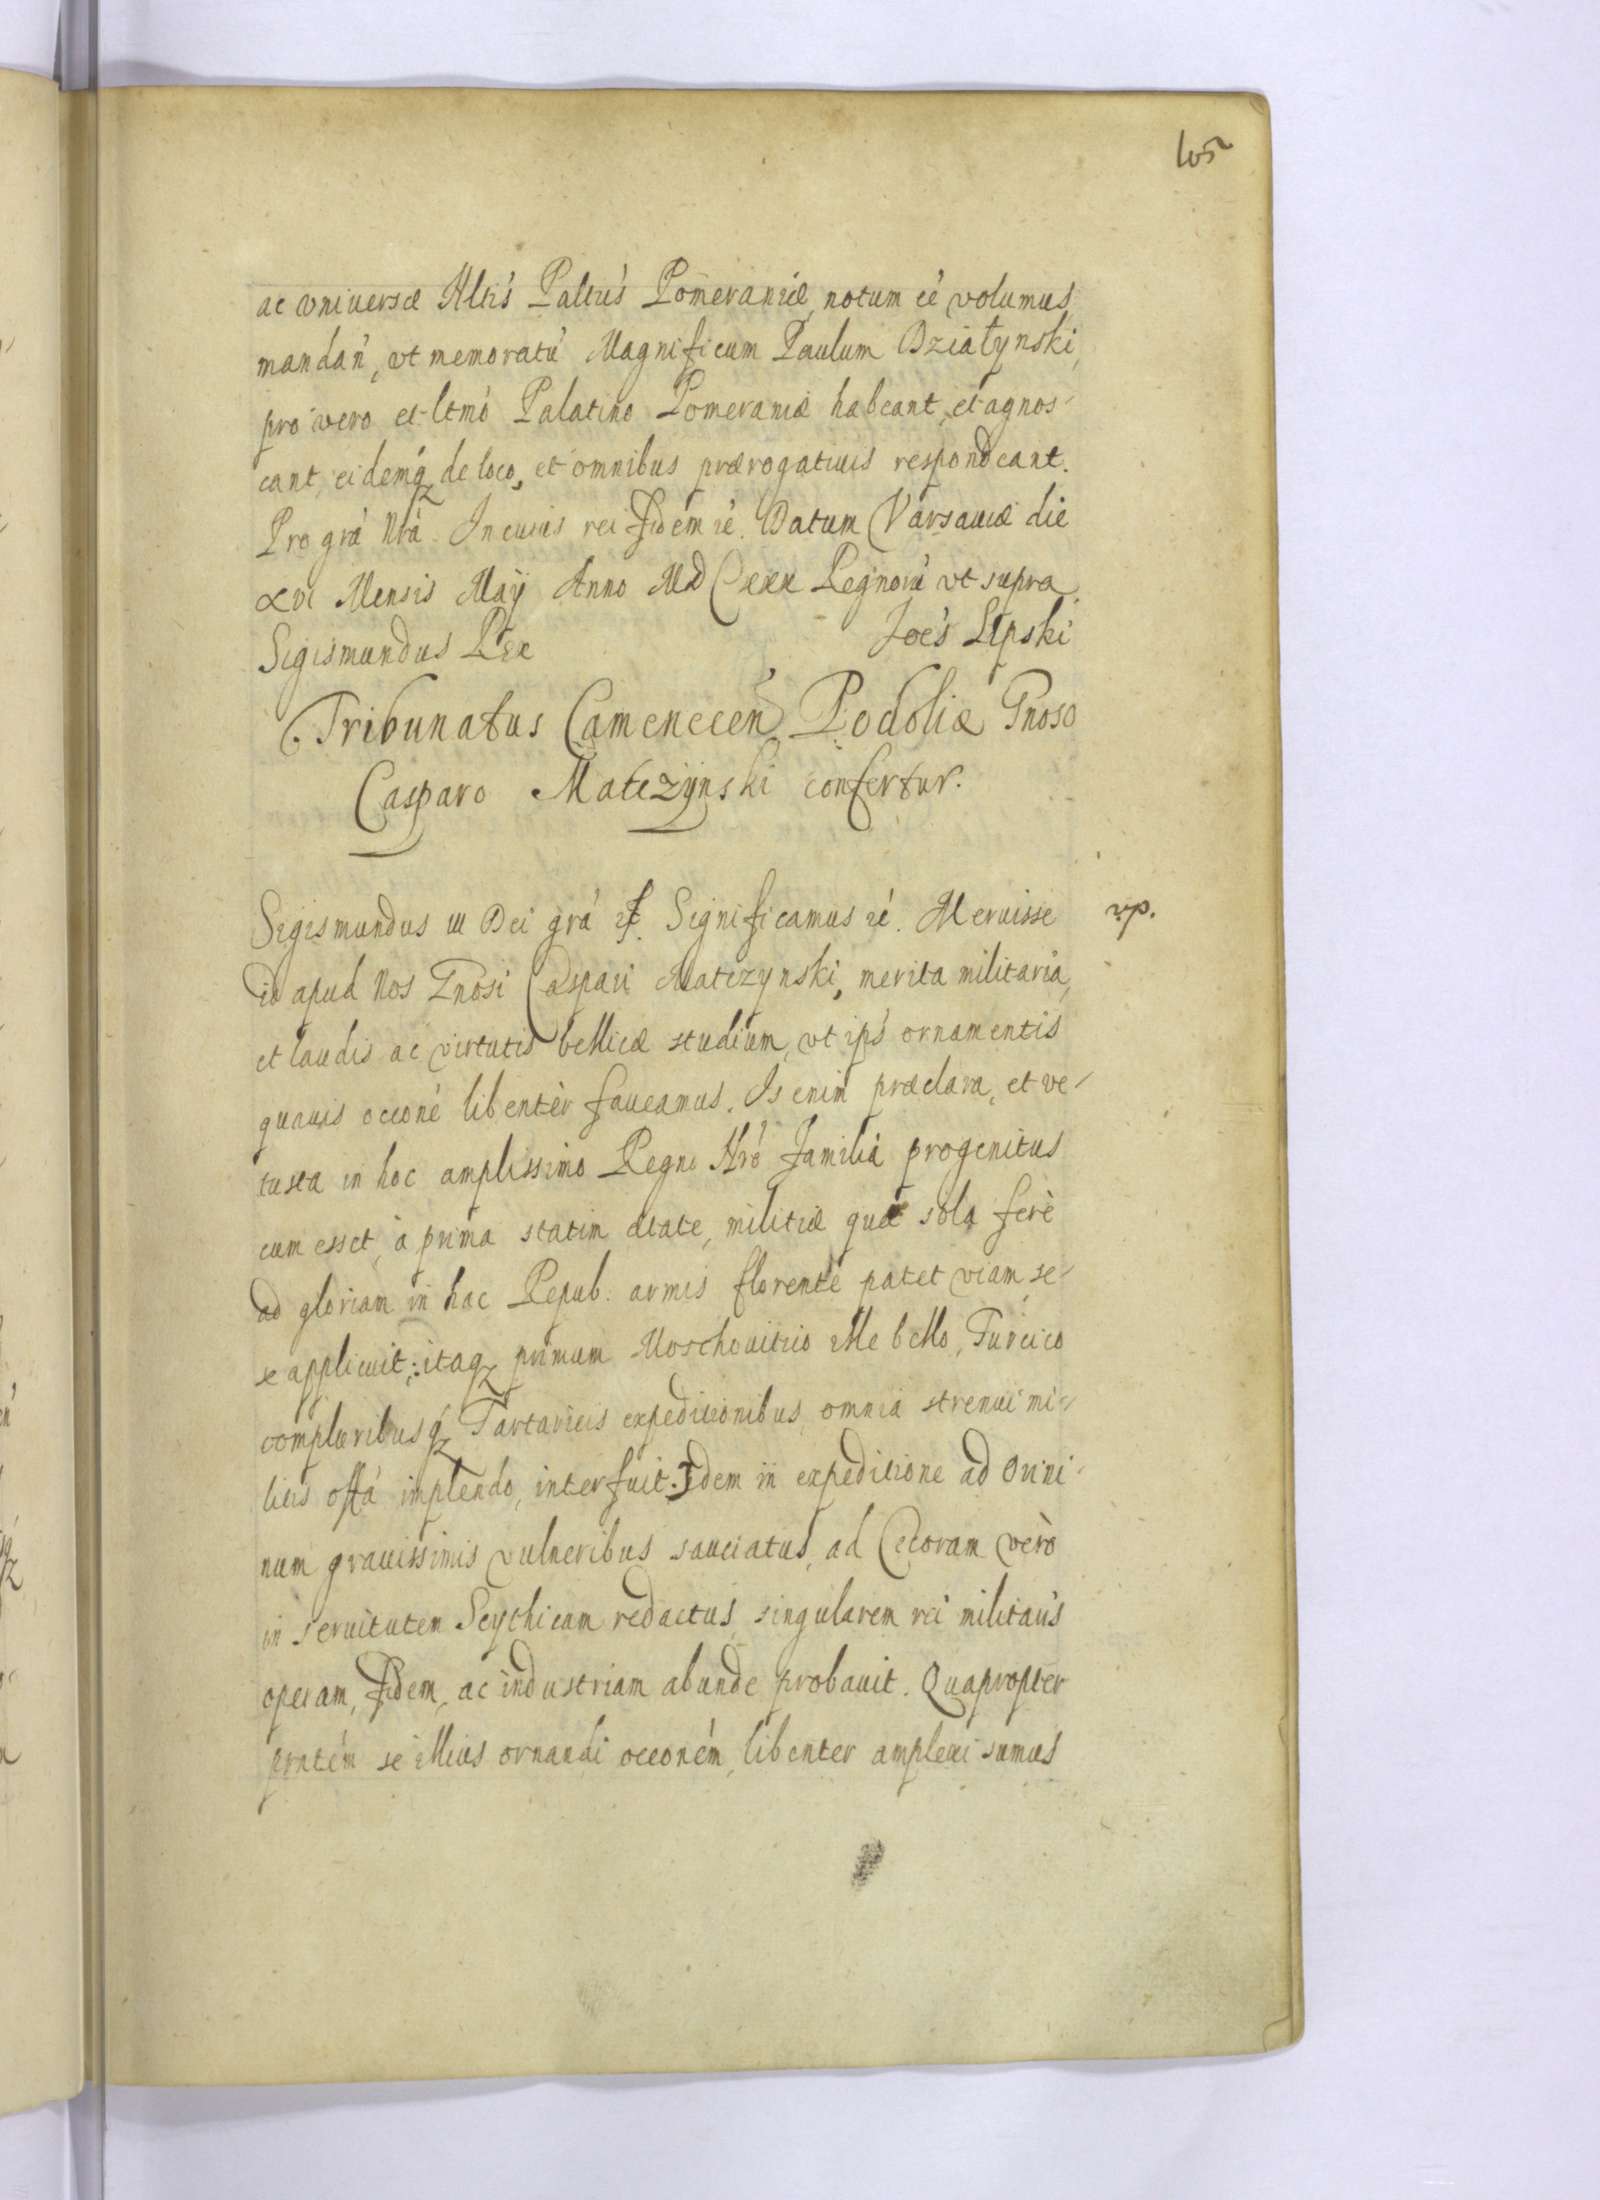 105
ac vniversæ Nltis Paltus Pomeraniæ, notum eé volumus,
mandań, vt memoratú Magnificum Paulum Działynski,
pro vero et ltmó Palatino Pomeraniæ habeant, et agnos-
cant, eidemq; de loco, et omnibus prærogatiuis respondeant.
Pro grá Nrá. In cuius rei fidem ié. Datum Varsauiæ die
xvi Mensis Maÿ Anno MDCxxx Regnorú vt supra.
Sigismundus Rex Joés Lipski
Tribunatus Camenecen̄ Podoliæ Gnoso
Casparo Matczÿnski confertur.
Sigismundus III Dei grá etc. Significamus ié. Meruisse
vp.
id apud Nos Gnosi Caspari Matczynski, merita militaria,
et laudis ac virtutis bellicæ studium, vt ips ornamentis
quauis occoné libentèr faueamus. Is enim præclara, et ve-
tusta in hoc amplissimo Regno Nró familiá progenitus
cum esset, à prima statim ætate, militiæ quæ sola ferè
ad gloriam in hac Repub. armis florente patet viam, se-
se applicuit, itaq; primum Moschouitico ille bello, Turcico
compluribusq; Tartaricis expeditionibus, omnia strenui mi-
litis offá implendo, interfuit. Idem in expeditione ad Orini-
num grauissimis vulneribus sauciatus, ad Cecoram verò
in seruitutem Scythicam redactus, singularem rei militaris
operam, fidem, ac industriam abunde probauit. Quapropter
pntém se illius ornandi occoném, libenter amplexi sumus